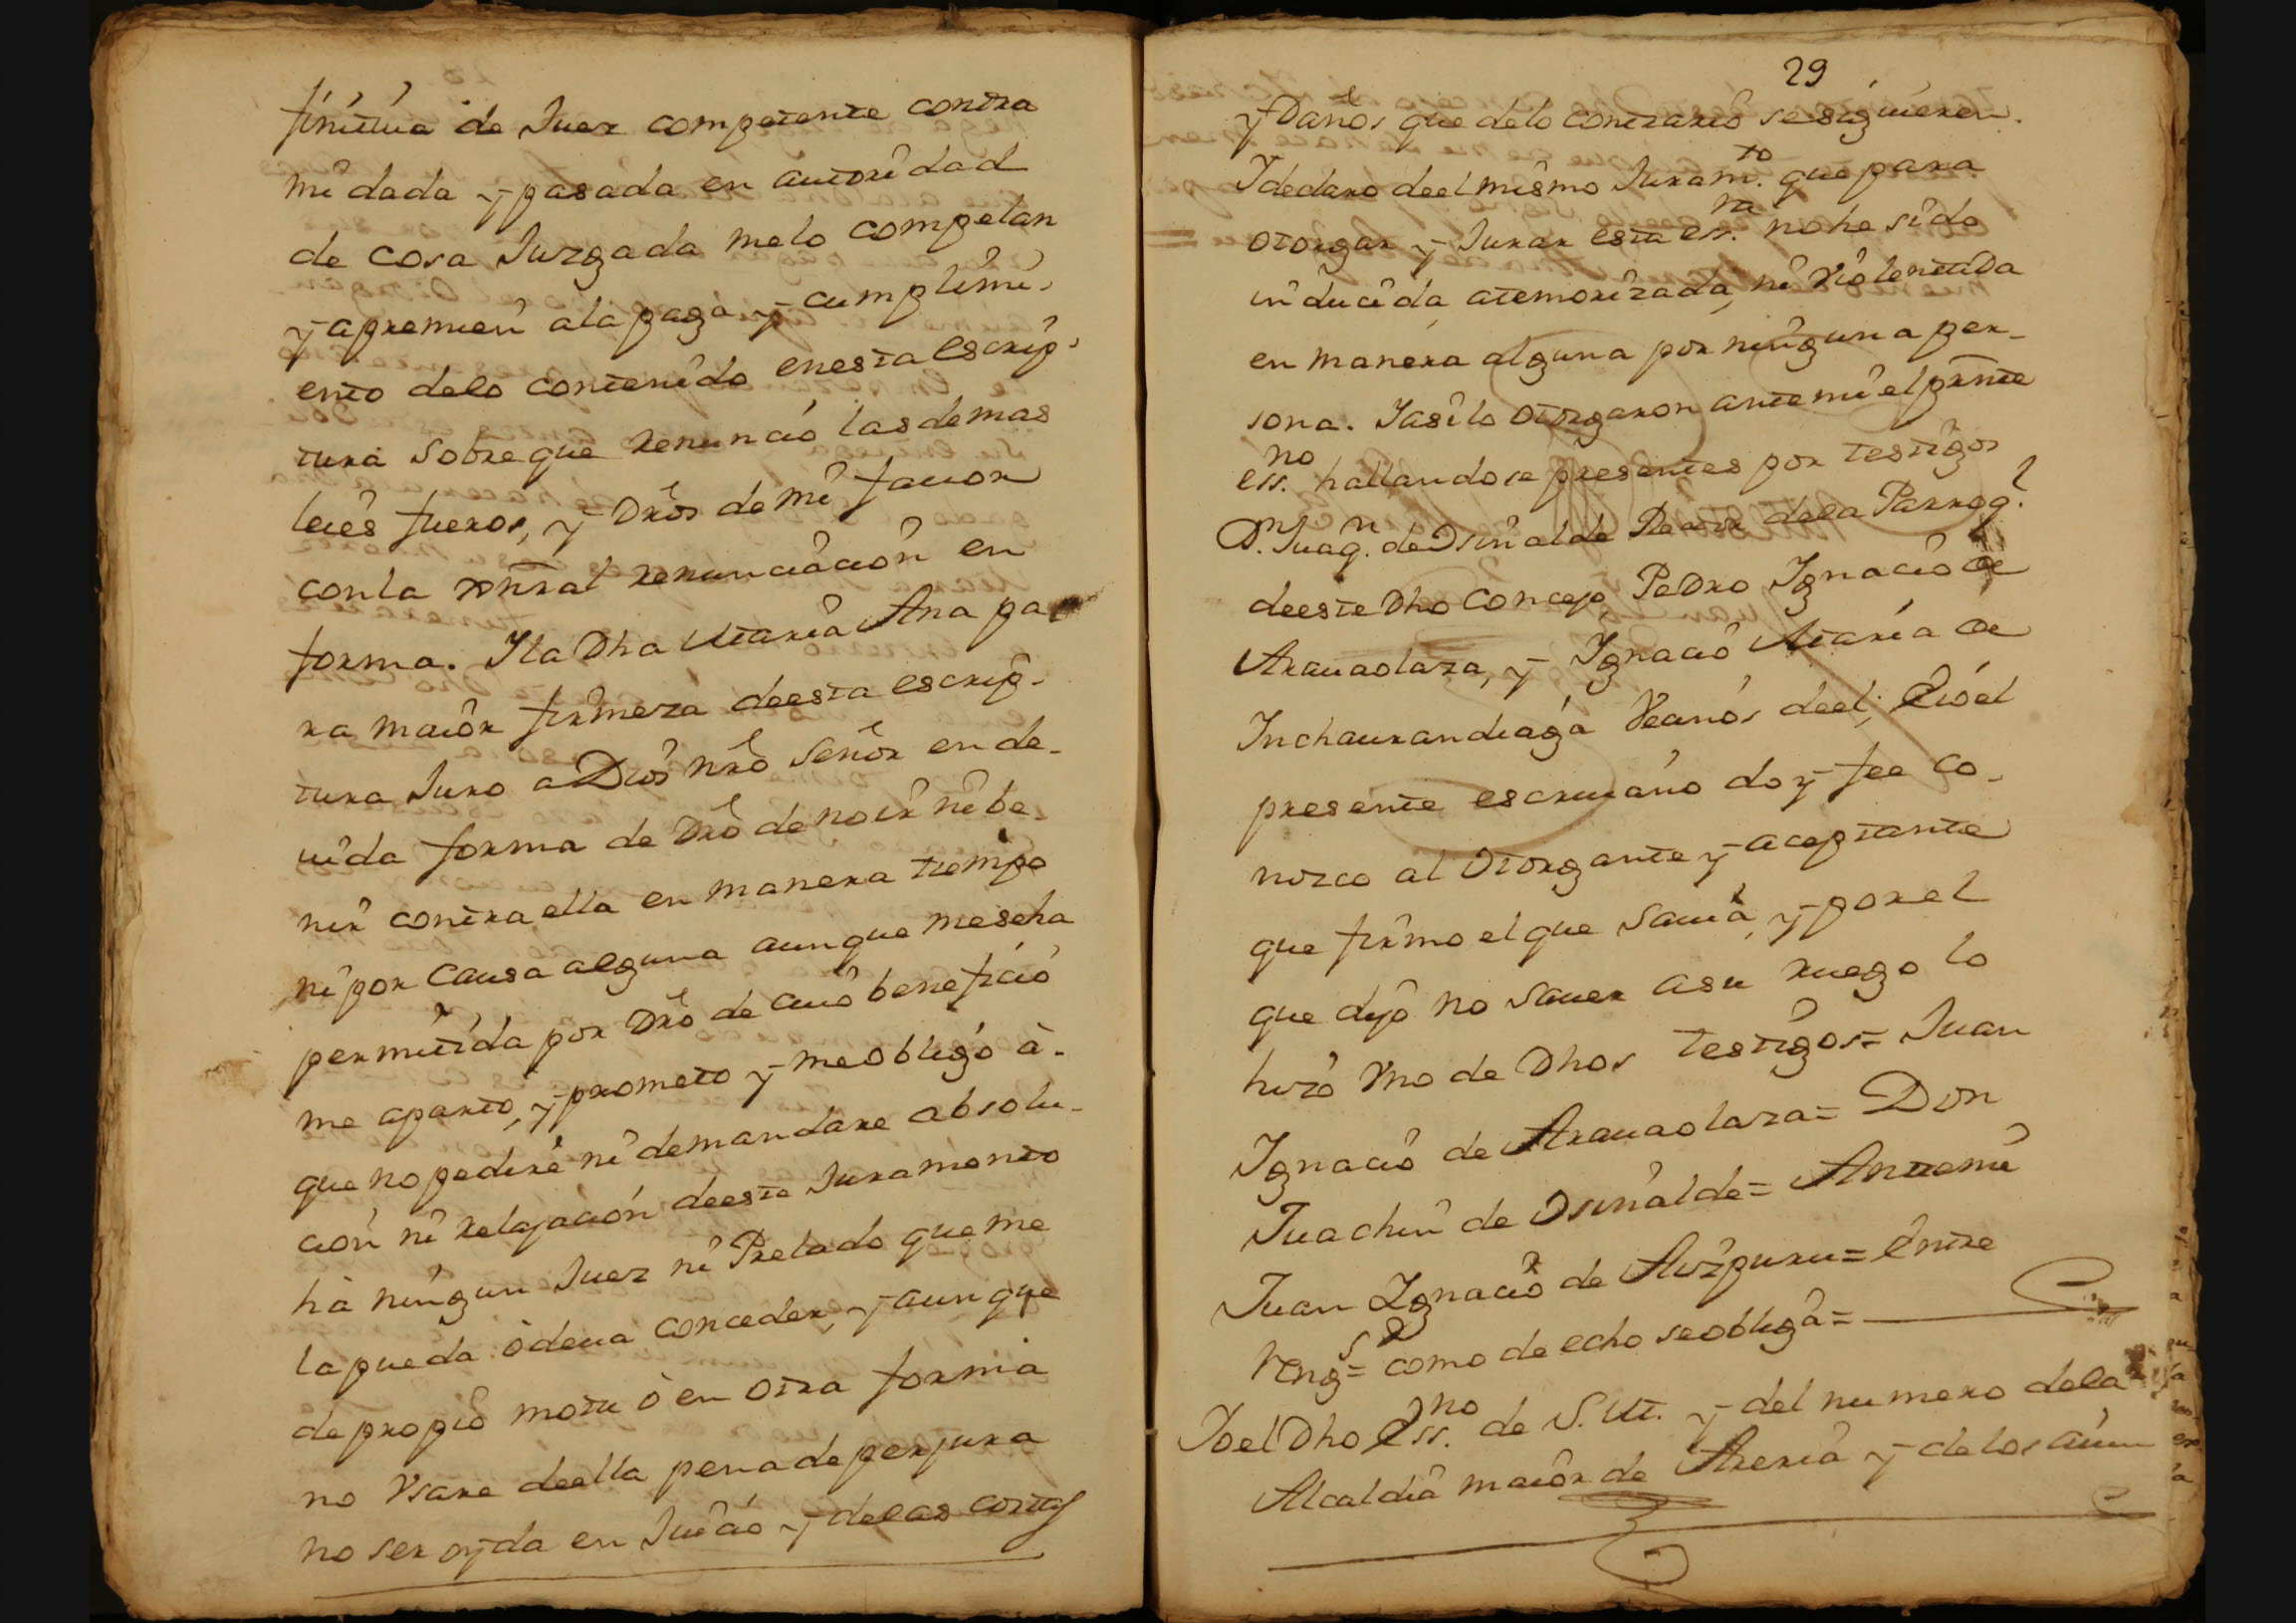 finitiua de Juez competente contra
mi dada y pasada en autoridad
de cosa Juzgada melo competan
y apremien ala paga y cumplimi-
ento delo contenido enesta escrip-
tura sobre que renunció las demas
leies fueros, y Dr̃os de mi fauor
con la xn̄ral renunciación en
forma. Y la Dha Maria Ana pa
ra maior firmeza deesta escrip-
tura Juro a Dios nr̃o señor en de-
uida forma de Dr̃o de no ir ni be-
nir contra ella en manera tiempo
ni por causa alguna aunque meseha
permitida por Dr̃o de cuio beneficio
me aparto, y prometo y me obligo à-
que no pediré ni demandare absolu-
ción ni relajación deeste Juramento
hà ningun Juez ni Prelado que me
la pueda ò deua conceder, y aunque
de propio motu ò en otra forma
no Vsare deella pena de perjura
no ser oyda en Juicio y delas costas
29
y Daños que delo contrario se siguieren.
Y declaro deel mismo Juram.to que para
otorgar y Jurar esta ess.ra no he sido
inducida, atemorizada, ni Violentada
en manera alguna por ninguna per-
sona. Y asi lo otorgaron ante mi el prn̄te
ess.no hallandose presentes por testigos
D.n Juaq.n de Osinalde Rector dela Parroq.l
deeste Dho Concejo, Pedro Ignacio de
Arauaolaza, y Ignacio Maria de
Inchaurandiaga Vecinos deel; È io el
presente escriuano doy fee co-
nozco al Otorgante y aceptante
que firmo el que Sauia, y por el
que dijo no Sauer a su ruego lo
hizo Vno de Dhos testigos= Juan
Ignacio de Arauaolaza= Don
Juachin de Osinalde= Antemi
Juan Ignacio de Aizpuru= Entre
Reng.s= como de echo se obliga=
Yo el Dho Ess.no de S. M. y del numero dela
Alcaldia maior de Areria y delos aiun